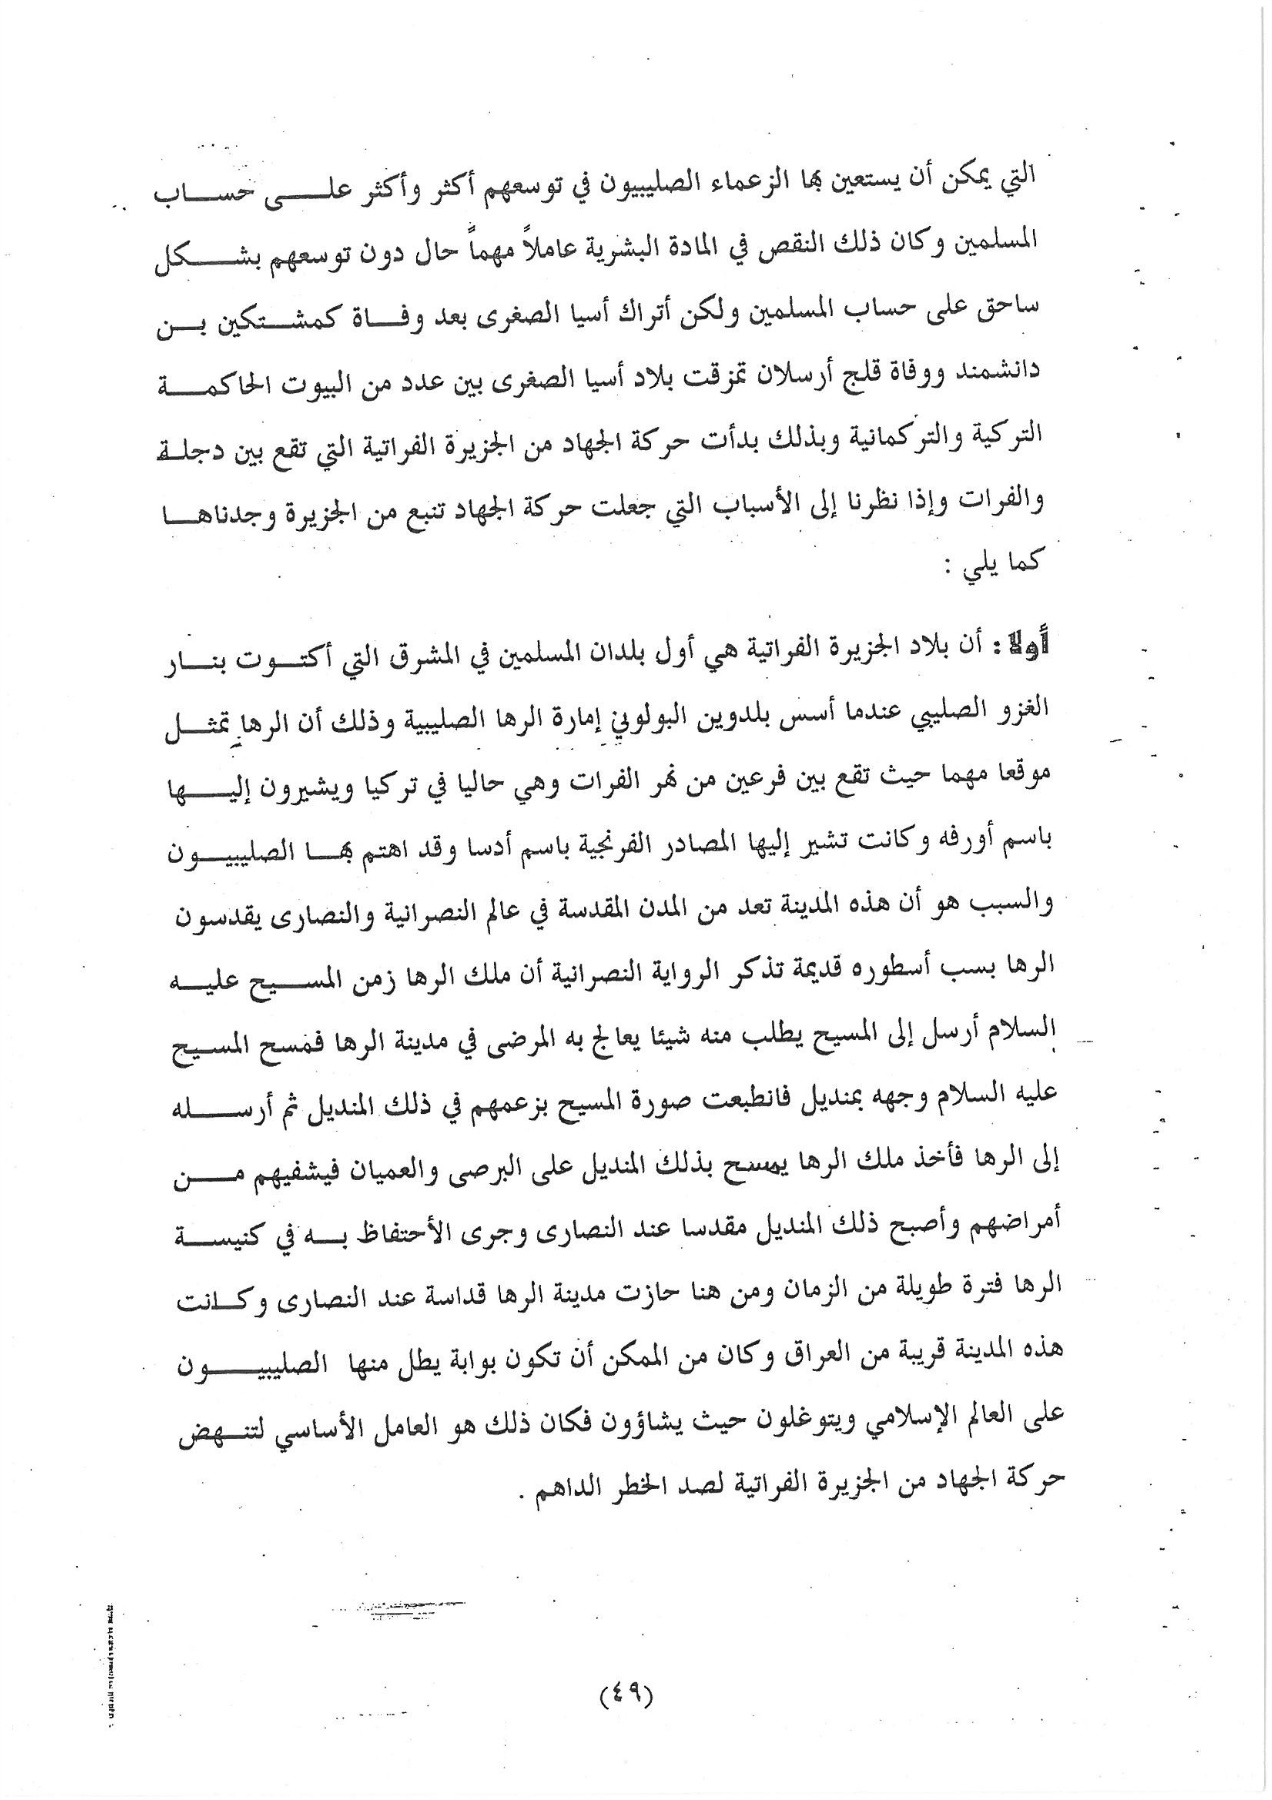 التي يمكن أن يستعين بها الزعماء الصليبيون في توسعهم أكثر وأكثر على حساب
المسلمين وكان ذلك النقص في المادة البشرية عاملاً مهماً حال دون توسعهم بشكل
ساحق على حساب المسلمين ولكن أتراك أسيا الصغرى بعد وفاة كمشتكين بن
دانشمند ووفاة قلج أرسلان تمزقت بلاد أسيا الصغرى بين عدد من البيوت الحاكمة
التركية والتركمانية وبذلك بدأت حركة الجهاد من الجزيرة الفراتية التي تقع بين دجلة
والفرات وإذا نظرنا إلى الأسباب التي جعلت حركة الجهاد تنبع من الجزيرة وجدناها
كما يلي :
أولاً : أن بلاد الجزيرة الفراتية هي أول بلدان المسلمين في المشرق التي أكتوت بنار
الغزو الصليبي عندما أسس بلدوين البولوني إمارة الرها الصليبية وذلك أن الرها تمثل
موقعا مهما حيث تقع بين فرعين من نهر الفرات وهي حاليا في تركيا ويشيرون إليها
باسم أورفه وكانت تشير إليها المصادر الفرنجية باسم أدسا وقد اهتم بها الصليبيون
والسبب هو أن هذه المدينة تعد من المدن المقدسة في عالم النصرانية والنصارى يقدسون
الرها بسب أسطوره قديمة تذكر الرواية النصرانية أن ملك الرها زمن المسيح عليه
السلام أرسل إلى المسيح يطلب منه شيئا يعالج به المرضى في مدينة الرها فمسح المسيح
عليه السلام وجهه بمنديل فانطبعت صورة المسيح بزعمهم في ذلك المنديل ثم أرسله
إلى الرها فأخذ ملك الرها يمسح بذلك المنديل على البرصى والعميان فيشفيهم من
أمراضهم وأصبح ذلك المنديل مقدسا عند النصارى وجرى الأحتفاظ به في كنيسة
الرها فترة طويلة من الزمان ومن هنا حازت مدينة الرها قداسة عند النصارى وكانت
هذه المدينة قريبة من العراق وكان من الممكن أن تكون بوابة يطل منها الصليبيون
على العالم الإسلامي ويتوغلون حيث يشاؤون فكان ذلك هو العامل الأساسي لتنهض
حركة الجهاد من الجزيرة الفراتية لصد الخطر الداهم .
(٤٩)